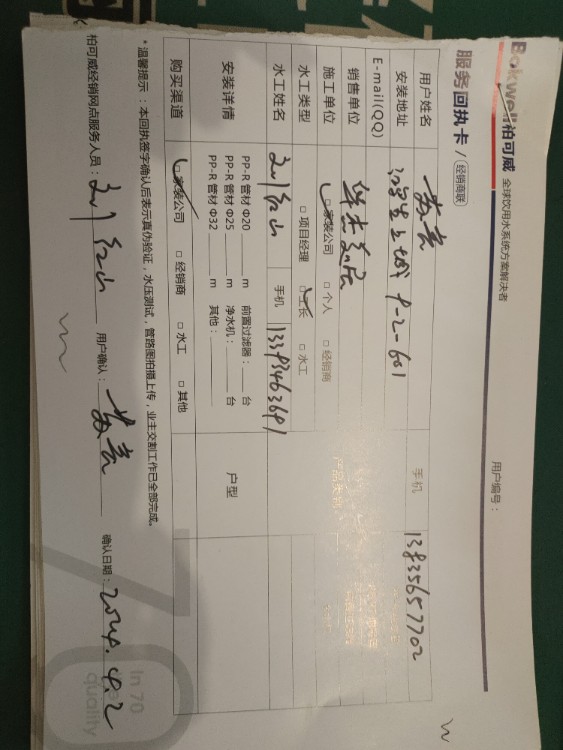 Bokwell柏可威 全球饮用水系统方案解决者
服务回执卡 / 经销商联
用户编号：
用户姓名 手机 13835657702
安装地址 9-2-601
E-mail(QQ)
销售单位
施工单位 □家装公司 □个人 □经销商
水工类型 □项目经理 □工长 □水工
水工姓名 刘红山 手机 13393463691
安装详情 PP-R 管材 Φ20 m 前置过滤器： 台 户型
PP-R 管材 Φ25 m 净水机： 台
PP-R 管材 Φ32 m 其他：
购买渠道 □家装公司 □经销商 □水工 □其他
*温馨提示：本回执签字确认后表示真伪验证，水压测试，管路图拍摄上传，业主交割工作已全部完成。
柏可威经销网点服务人员：刘红山 用户确认： 确认日期：2024.4.2
70
In 70
quality